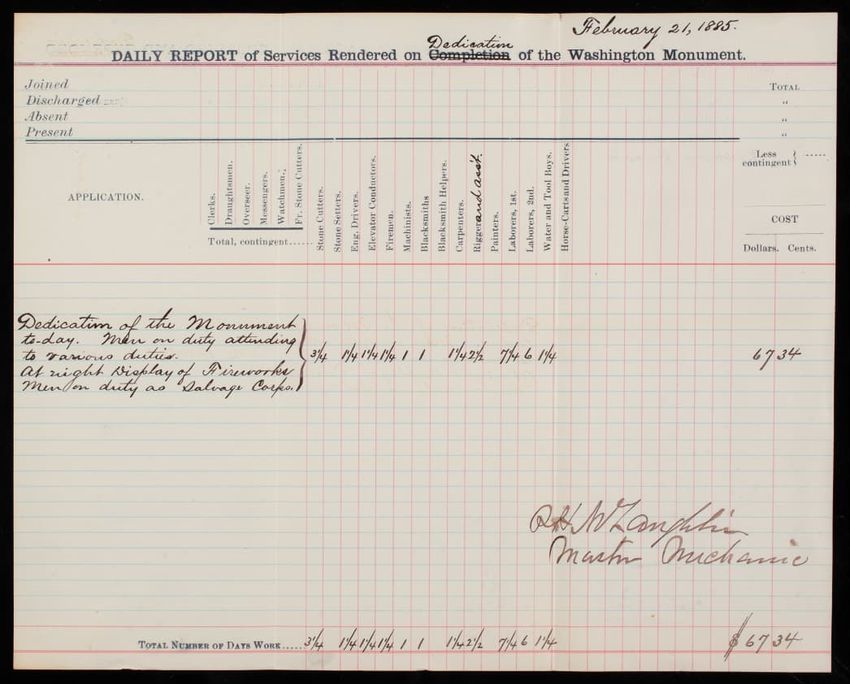 February 21, 1885.
Dedication
DAILY REPORT of Services Rendered on Completion of the Washington Monument.
Joined
TOTAL
Discharged
"
Absent
"
Present
"
APPLICATION.
Clerks.
Draughtsmen.
Overseer.
Messengers.
Watchmen.
Fr. Stone Cutters.
Total, contingent......
Stone Cutters.
Stone Setters.
Eng. Drivers.
Elevator Conductors.
Firemen.
Machinists.
Blacksmiths
Blacksmith Helpers.
Carpenters.
Rigger and asst.
Painters.
Laborers, 1st.
Laborers, 2nd.
Water and Tool Boys.
Horse-Carts and Drivers
Less contingent { .....
COST
Dollars. Cents.
Dedication of the Monument
to-day. Men on duty attending
to various duties.
At night Display of Fireworks
Men on duty as Salvage Corps.
3/4 1 1/4 1 1/4 1 1/4 1 1 1 1/4 2 1/2 7 1/4 6 1 1/4 67 34
P H McLaughlin
Master Mechanic
TOTAL NUMBER OF DAYS WORK..... 3/4 1 1/4 1 1/4 1 1/4 1 1 1 1/4 2 1/2 7 1/4 6 1 1/4 $ 67 34